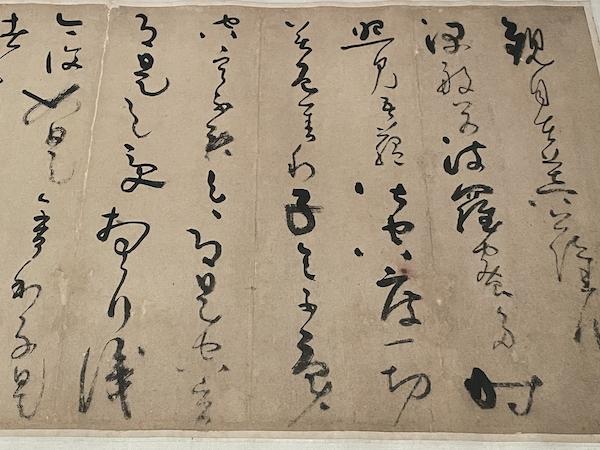 觀自在菩薩行
深般若波羅蜜多時
照見五蘊皆空度一切
苦厄舍利子色不異
空空不異色色即是空空
即是色受想行識
亦復如是舍利子是